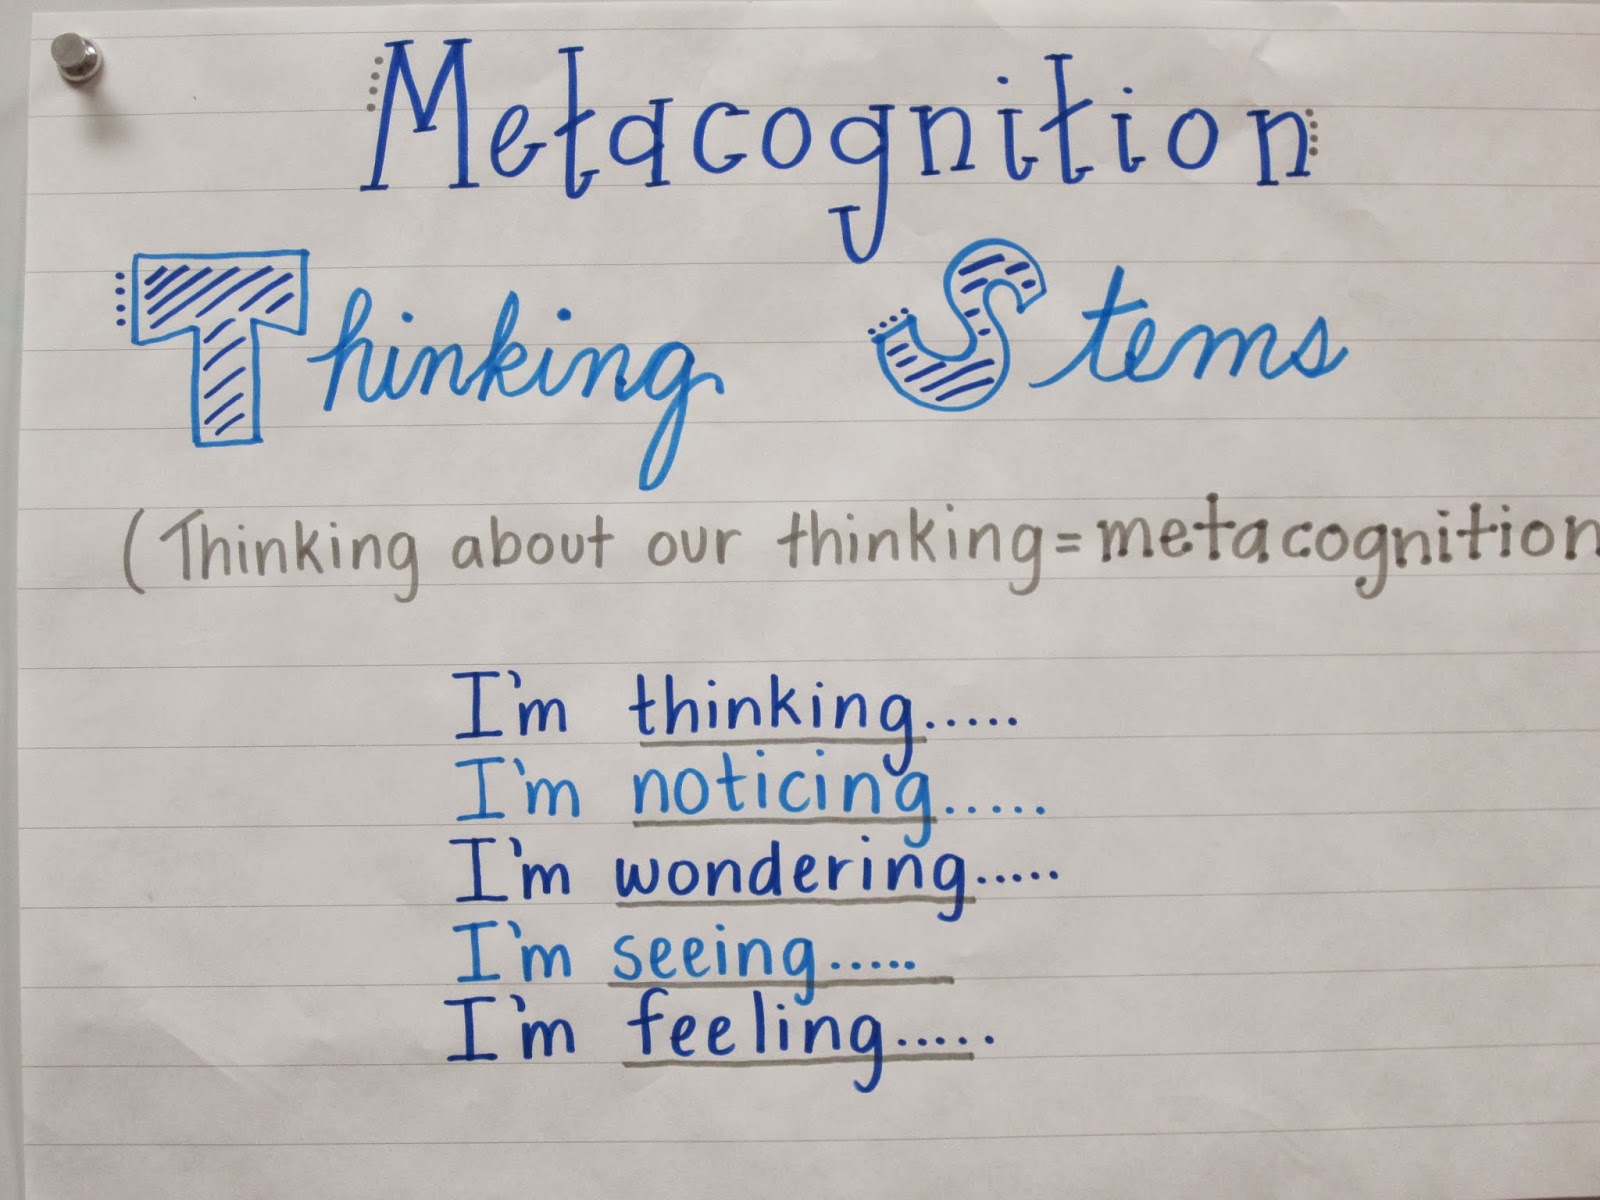 Metacognition
Thinking Stems
(Thinking about our thinking=metacognition
I'm thinking.....
I'm noticing.....
I'm wondering.....
I'm seeing.....
I'm feeling.....